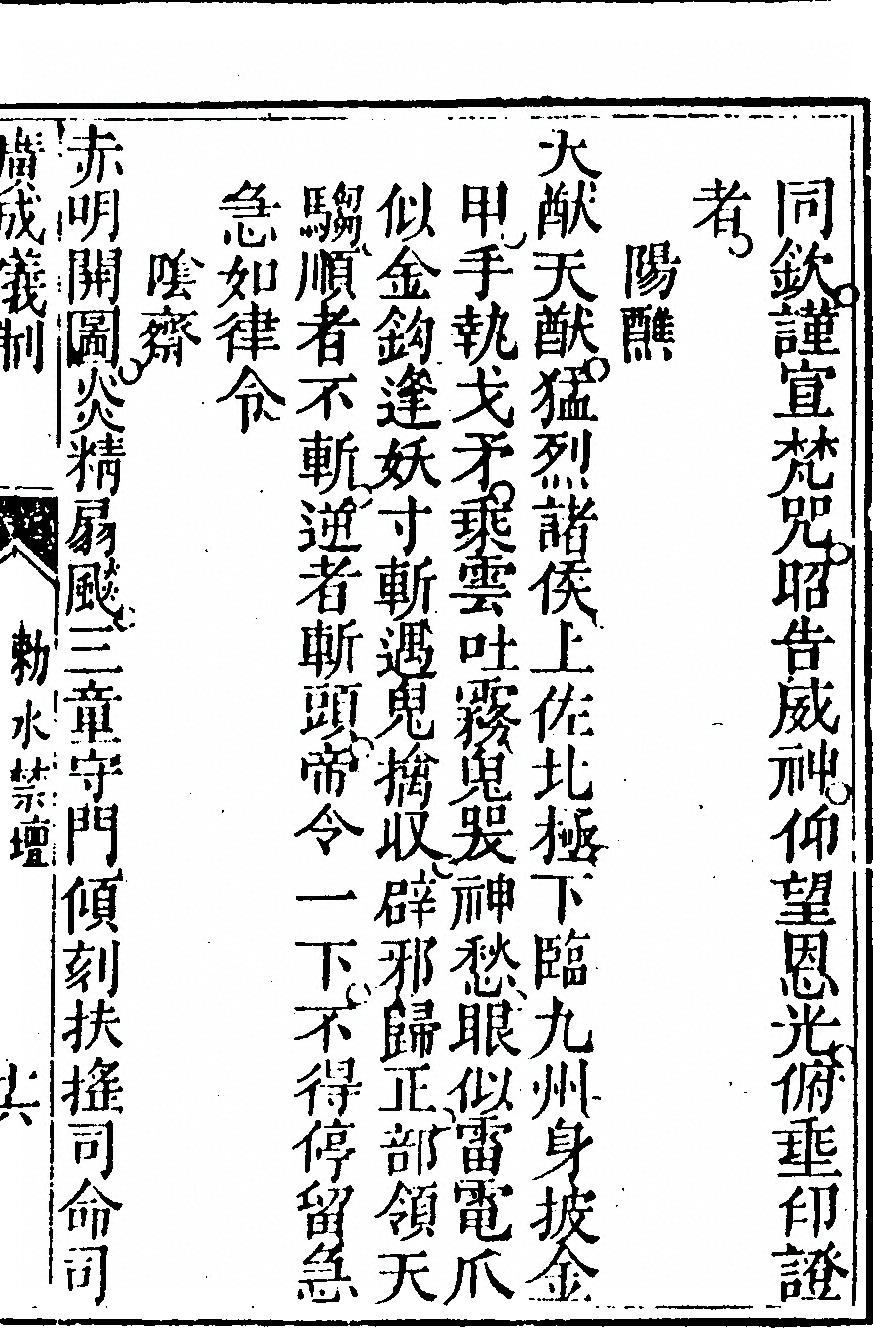 同欽謹宣梵咒昭告威神仰望恩光俯垂印證
者
陽醮
大猷天猷猛烈諸侯上佐北極下臨九州身披金
甲手執戈矛乘雲吐霧鬼哭神愁眼似雷電爪
似金鈎逢妖寸斬遇鬼擒収辟邪歸正部領天
騶順者不斬逆者斬頭帝令一下不得停留急
急如律令
陰齋
赤明開圖炎精扇飈三童守門傾刻扶搖司命司
廣成儀制
勅水禁壇
十六